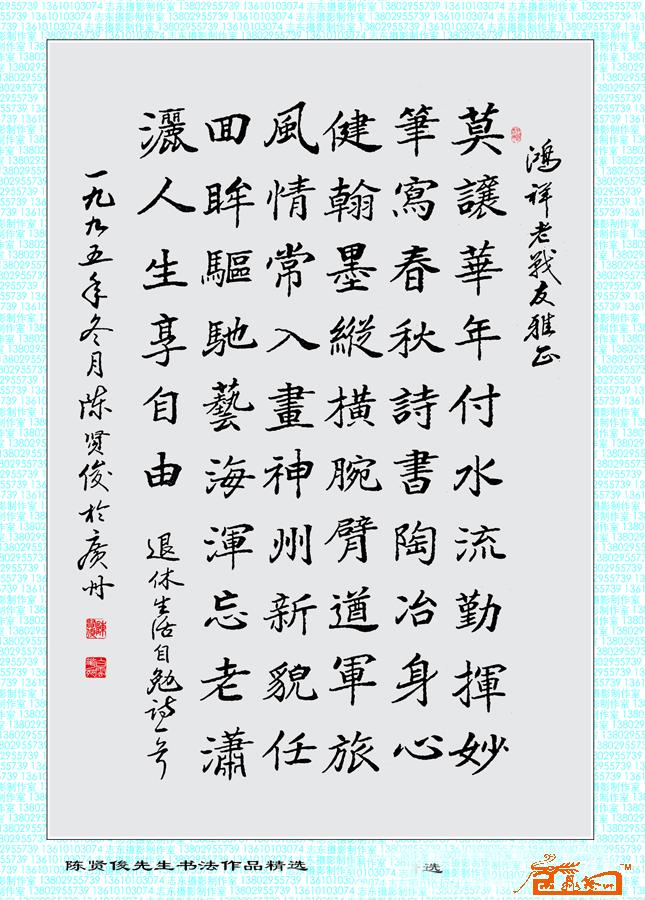 鴻祥老戰友雅正
莫讓華年付水流勤揮妙
筆寫春秋詩書陶冶身心
健翰墨縱橫腕臂遒軍旅
風情常入畫神州新貌任
回眸驅馳藝海渾忘老瀟
灑人生享自由 退休生活自勉诗一首
一九九五年冬月陈贤俊於廣州
陈贤俊先生书法作品精选
选
志东摄影制作室 13802955739 13610103074